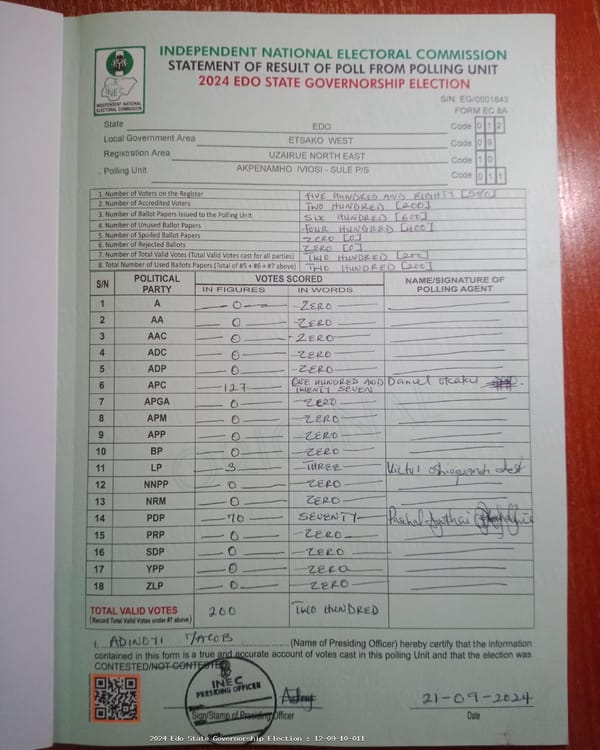 INDEPENDENT NATIONAL ELECTORAL COMMISSION
STATEMENT OF RESULT OF POLL FROM POLLING UNIT
2024 EDO STATE GOVERNORSHIP ELECTION
INEC
INDEPENDENT NATIONAL ELECTORAL COMMISSION
S/N: EG/0001643
FORM EC 8A
State EDO Code 0 1 2
Local Government Area ETSAKO WEST Code 0 9
Registration Area UZAIRUE NORTH EAST Code 1 0
Polling Unit AKPENAMHO IVIOSI - SULE P/S Code 0 1 1
1. Number of Voters on the Register FIVE HUNDRED AND EIGHTY [580]
2. Number of Accredited Voters TWO HUNDRED [200]
3. Number of Ballot Papers Issued to the Polling Unit SIX HUNDRED [600]
4. Number of Unused Ballot Papers FOUR HUNDRED [400]
5. Number of Spoiled Ballot Papers ZERO [0]
6. Number of Rejected Ballots ZERO [0]
7. Number of Total Valid Votes (Total Valid Votes cast for all parties) TWO HUNDRED [200]
8. Total Number of Used Ballots Papers (Total of #5 + #6 + #7 above) TWO HUNDRED [200]
S/N POLITICAL PARTY VOTES SCORED NAME/SIGNATURE OF POLLING AGENT
IN FIGURES IN WORDS
1 A 0 ZERO
2 AA 0 ZERO
3 AAC 0 ZERO
4 ADC 0 ZERO
5 ADP 0 ZERO
6 APC 127 ONE HUNDRED AND TWENTY SEVEN Daniel
7 APGA 0 ZERO
8 APM 0 ZERO
9 APP 0 ZERO
10 BP 0 ZERO
11 LP 3 THREE
12 NNPP 0 ZERO
13 NRM 0 ZERO
14 PDP 70 SEVENTY
15 PRP 0 ZERO
16 SDP 0 ZERO
17 YPP 0 ZERO
18 ZLP 0 ZERO
TOTAL VALID VOTES 200 TWO HUNDRED
(Record Total Valid Votes under #7 above)
I, ADINOYI JACOB (Name of Presiding Officer) hereby certify that the information
contained in this form is a true and accurate account of votes cast in this polling Unit and that the election was
CONTESTED/NOT CONTESTED
INEC
PRESIDING OFFICER
21-09-2024
Sign/Stamp of Presiding Officer Date
2024 Edo State Governorship Election : 12-09-10-011